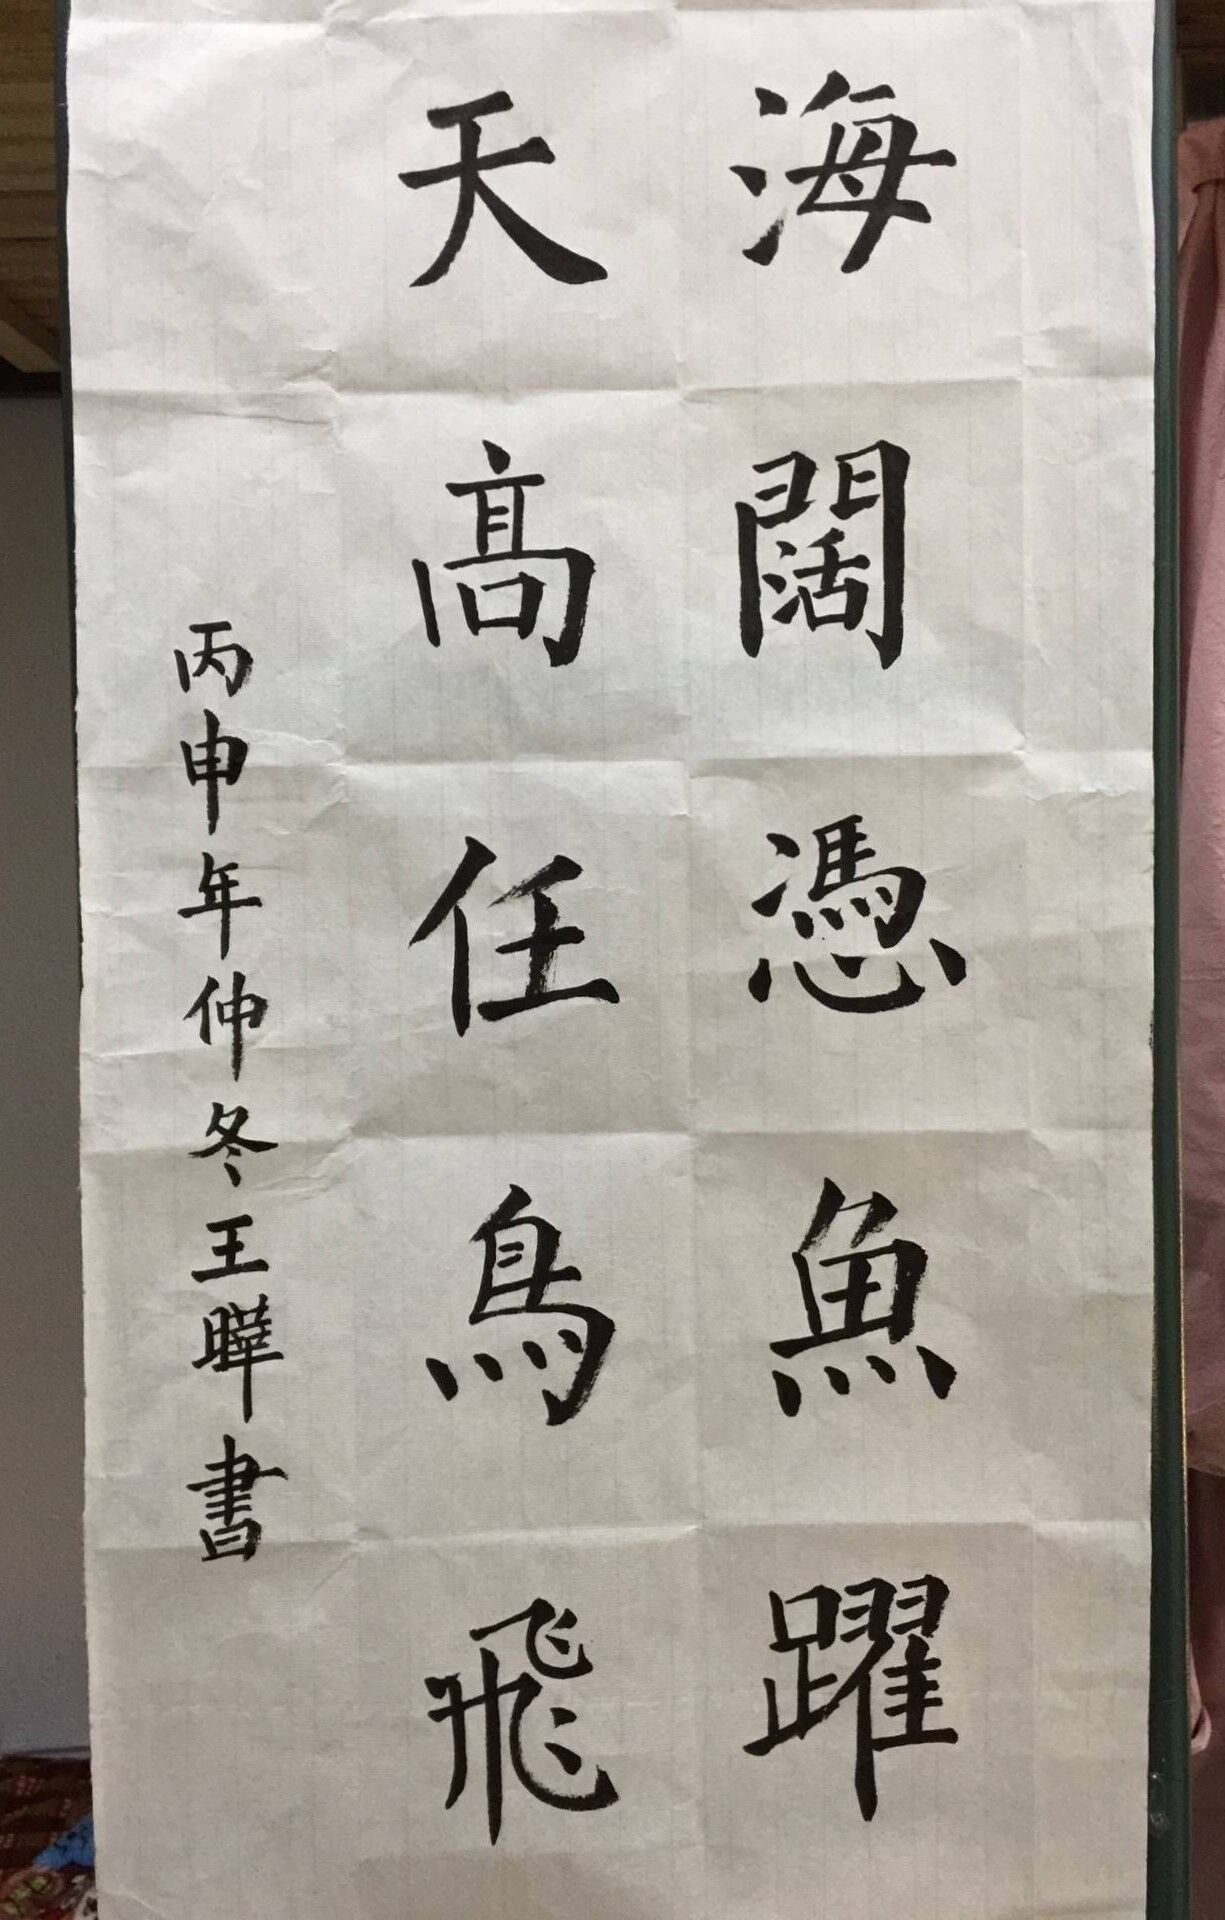 海闊憑魚躍
天高任鳥飛
丙申年仲冬王曄書